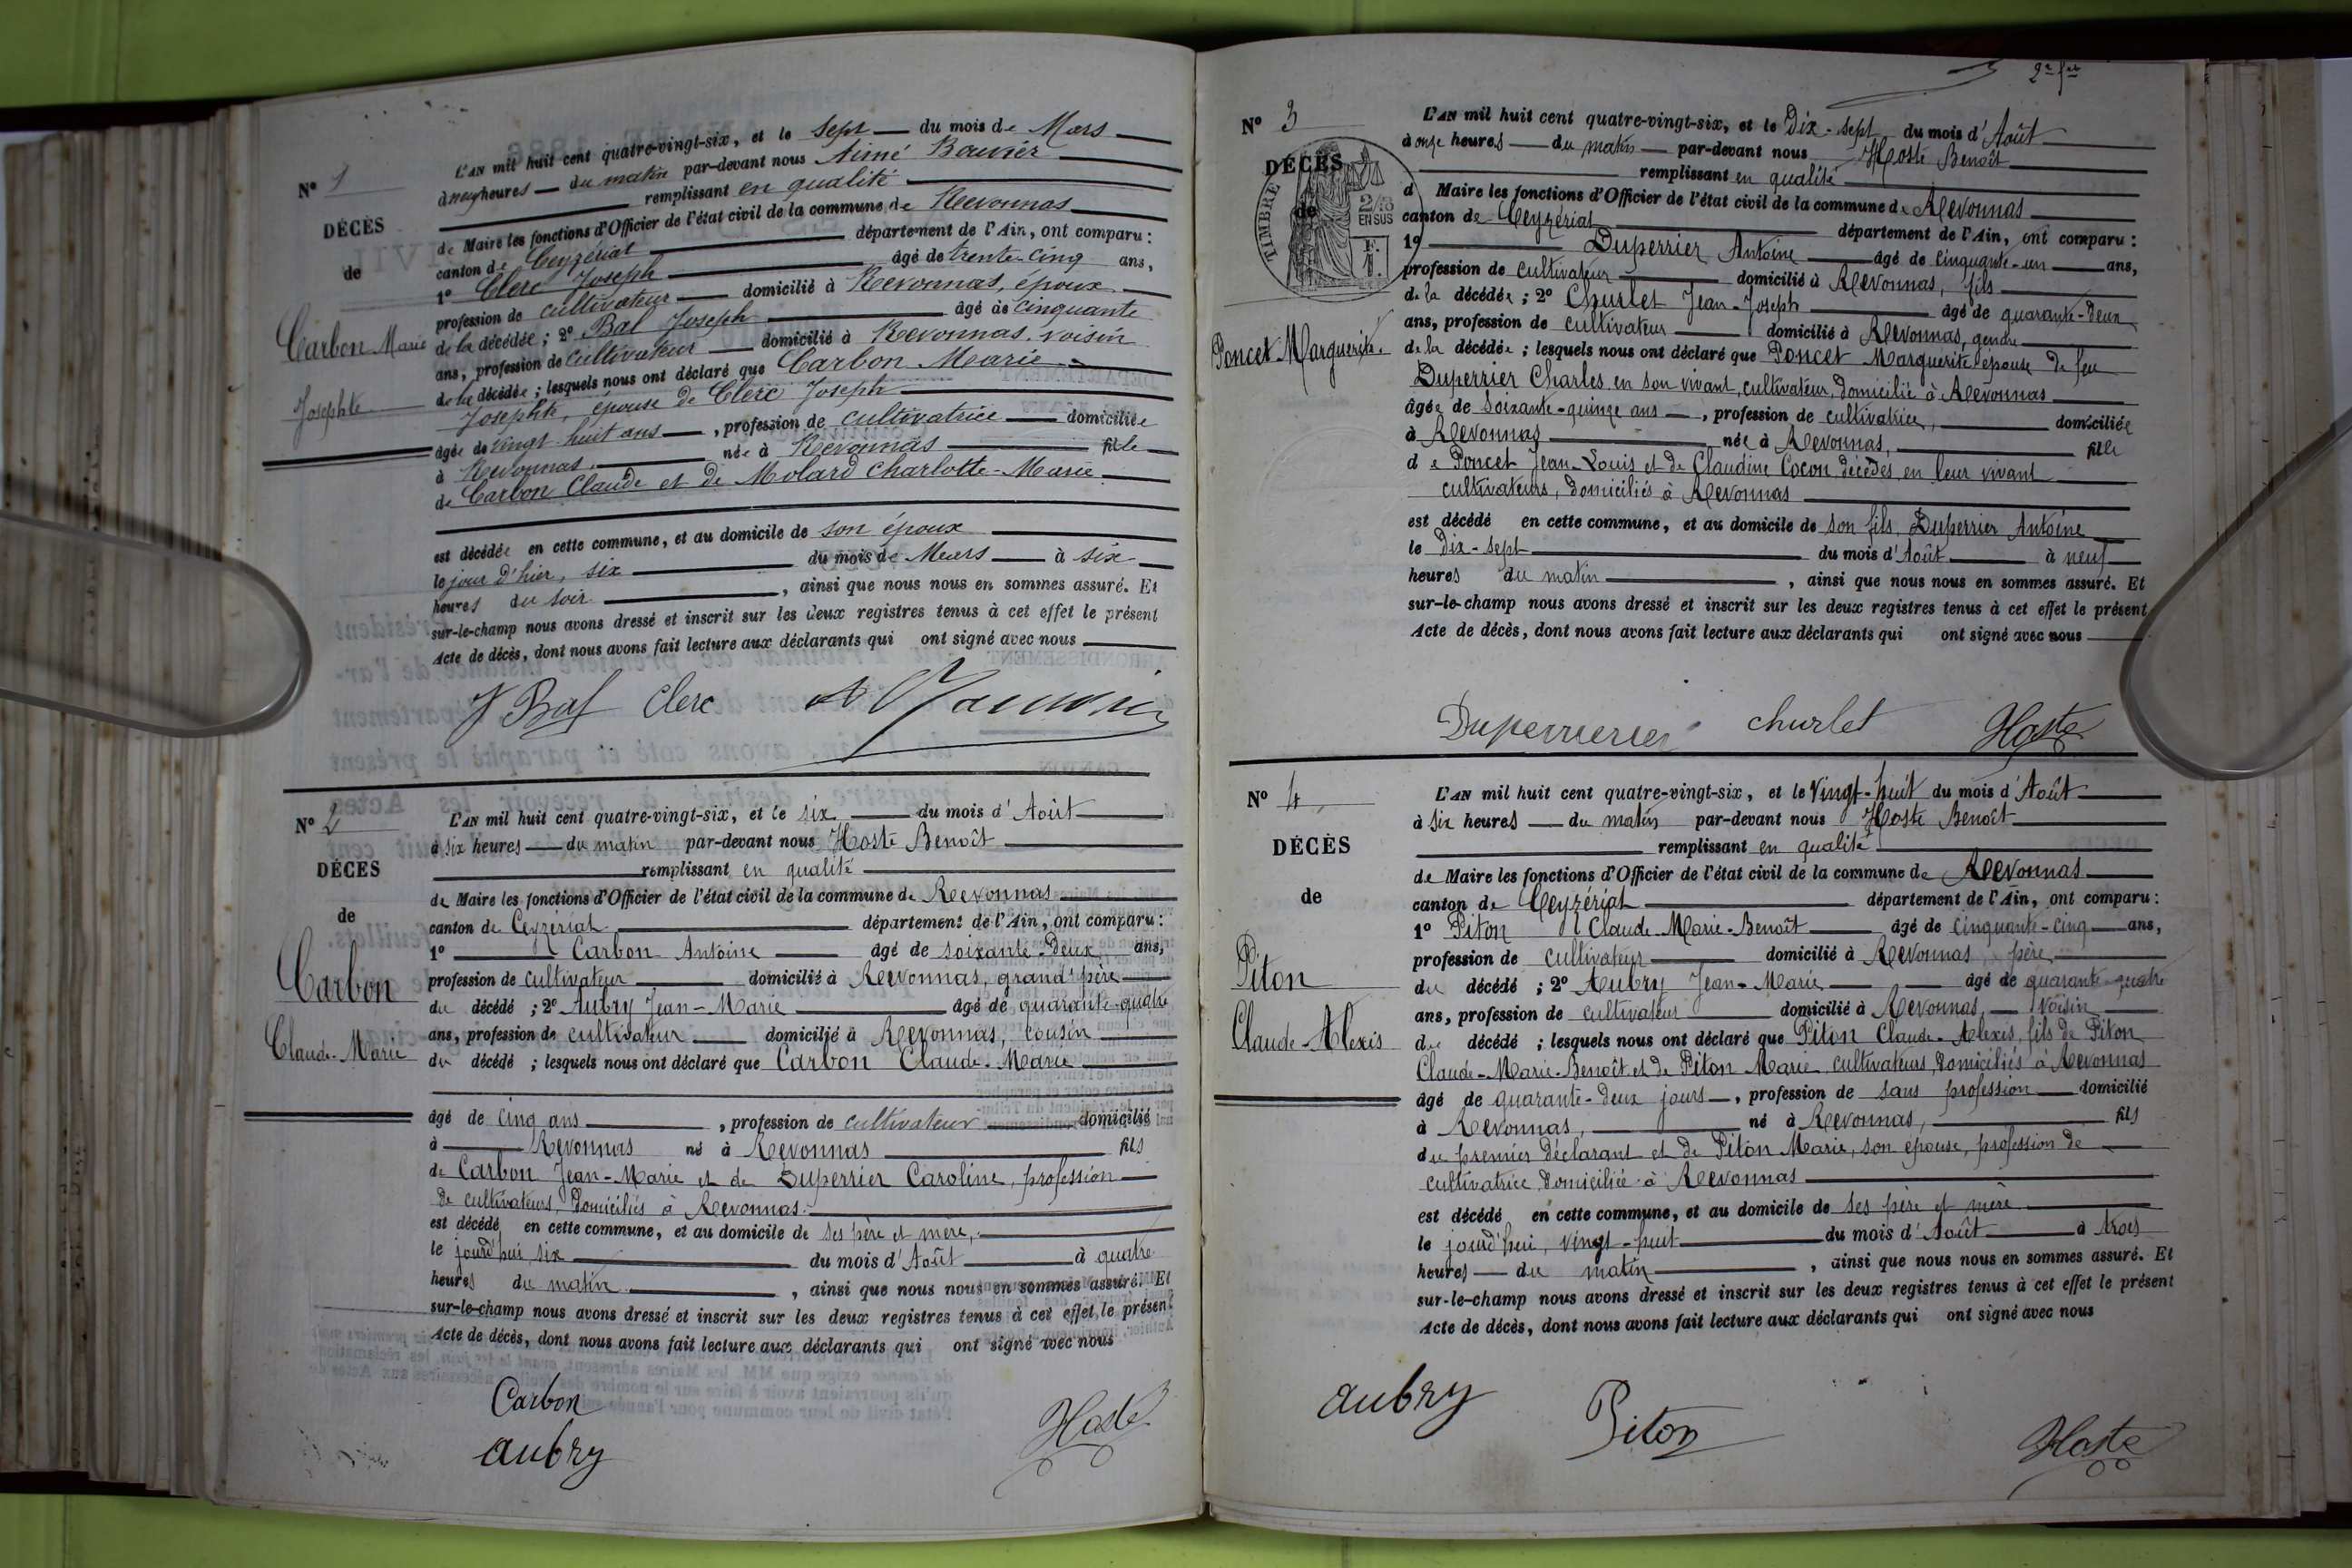 N° 1
DÉCÈS
de
Carbon Marie
Josephte
L'AN mil huit cent quatre-vingt-six, et le sept du mois de Mars
à neuf heures du matin par-devant nous Aimé Bouvier
remplissant en qualité
de Maire les fonctions d'Officier de l'état civil de la commune de Revonnas
canton de Ceyzériat département de l'Ain, ont comparu :
1° Clerc Joseph âgé de trente-cinq ans,
profession de cultivateur domicilié à Revonnas, époux
de la décédée ; 2° Bal Joseph âgé de cinquante
ans, profession de cultivateur domicilié à Revonnas, voisin
de la décédée ; lesquels nous ont déclaré que Carbon Marie
Josephte, épouse de Clerc Joseph
âgée de vingt-huit ans, profession de cultivatrice domiciliée
à Revonnas, née à Revonnas fille
de Carbon Claude et de Molard Charlotte-Marie
est décédée en cette commune, et au domicile de son époux
le jour d'hier, six du mois de Mars à six
heures du soir, ainsi que nous nous en sommes assuré. Et
sur-le-champ nous avons dressé et inscrit sur les deux registres tenus à cet effet le présent
Acte de décès, dont nous avons fait lecture aux déclarants qui ont signé avec nous
J Bal Clerc
N° 2
DÉCES
de
Carbon
Claude-Marie
L'AN mil huit cent quatre-vingt-six, et le six du mois d'Août
à six heures du matin par-devant nous Hoste Benoît
remplissant en qualité
de Maire les fonctions d'Officier de l'état civil de la commune de Revonnas
canton de Ceyzériat département de l'Ain, ont comparu :
1° Carbon Antoine âgé de soixante-deux ans,
profession de cultivateur domicilié à Revonnas, grand'père
du décédé ; 2° Aubry Jean-Marie âgé de quarante-quatre
ans, profession de cultivateur domicilié à Revonnas, cousin
du décédé ; lesquels nous ont déclaré que Carbon Claude-Marie
âgé de cinq ans, profession de cultivateur domicilié
à Revonnas né à Revonnas fils
de Carbon Jean-Marie et de Duperrier Caroline, profession
de cultivateurs, domiciliés à Revonnas.
est décédé en cette commune, et au domicile de ses père et mère,
le jourd'hui six du mois d'Août à quatre
heures du matin, ainsi que nous nous en sommes assuré. Et
sur-le-champ nous avons dressé et inscrit sur les deux registres tenus à cet effet, le présent
Acte de décès, dont nous avons fait lecture aux déclarants qui ont signé avec nous
Carbon
Aubry
Hoste
N° 3
DÉCÈS
de
TIMBRE
2/10
EN SUS
F.
1.
Poncet Marguerite
L'AN mil huit cent quatre-vingt-six, et le Dix-sept du mois d'Août
à onze heures du matin par-devant nous Hoste Benoît
remplissant en qualité
d Maire les fonctions d'Officier de l'état civil de la commune de Revonnas
canton de Ceyzériat département de l'Ain, ont comparu :
1° Duperrier Antoine âgé de cinquante-un ans,
profession de cultivateur domicilié à Revonnas, fils
de la décédée ; 2° Churlet Jean-Joseph âgé de quarante-deux
ans, profession de cultivateur domicilié à Revonnas, gendre
de la décédée ; lesquels nous ont déclaré que Poncet Marguerite épouse de feu
Duperrier Charles en son vivant, cultivateur, domicilié à Revonnas
âgée de soixante-quinze ans, profession de cultivatrice, domiciliée
à Revonnas née à Revonnas, fille
de Poncet Jean-Louis et de Claudine Cocon décédés, en leur vivant
cultivateurs, domiciliés à Revonnas
est décédé en cette commune, et au domicile de son fils, Duperrier Antoine
le Dix-sept du mois d'Août à neuf
heures du matin, ainsi que nous nous en sommes assuré. Et
sur-le-champ nous avons dressé et inscrit sur les deux registres tenus à cet effet le présent
Acte de décès, dont nous avons fait lecture aux déclarants qui ont signé avec nous
churlet Hoste
N° 4
DÉCÈS
de
Piton
Claude-Alexis
L'AN mil huit cent quatre-vingt-six, et le Vingt-huit du mois d'Août
à six heures du matin par-devant nous Hoste Benoît
remplissant en qualité
de Maire les fonctions d'Officier de l'état civil de la commune de Revonnas
canton de Ceyzériat département de l'Ain, ont comparu :
1° Piton Claude-Marie-Benoît âgé de cinquante-cinq ans,
profession de cultivateur domicilié à Revonnas, père
du décédé ; 2° Aubry Jean-Marie âgé de quarante-quatre
ans, profession de cultivateur domicilié à Revonnas, voisin
du décédé ; lesquels nous ont déclaré que Piton Claude-Alexis, fils de Piton
Claude-Marie-Benoît et de Piton Marie, cultivateurs, domiciliés à Revonnas
âgé de quarante-deux jours, profession de sans profession domicilié
à Revonnas, né à Revonnas, fils
du premier déclarant et de Piton Marie, son épouse, profession de
cultivatrice, domiciliée à Revonnas
est décédé en cette commune, et au domicile de ses père et mère
le jourd'hui, vingt-huit du mois d'Août à trois
heures du matin, ainsi que nous nous en sommes assuré. Et
sur-le-champ nous avons dressé et inscrit sur les deux registres tenus à cet effet le présent
Acte de décès, dont nous avons fait lecture aux déclarants qui ont signé avec nous
Aubry
Piton
Hoste